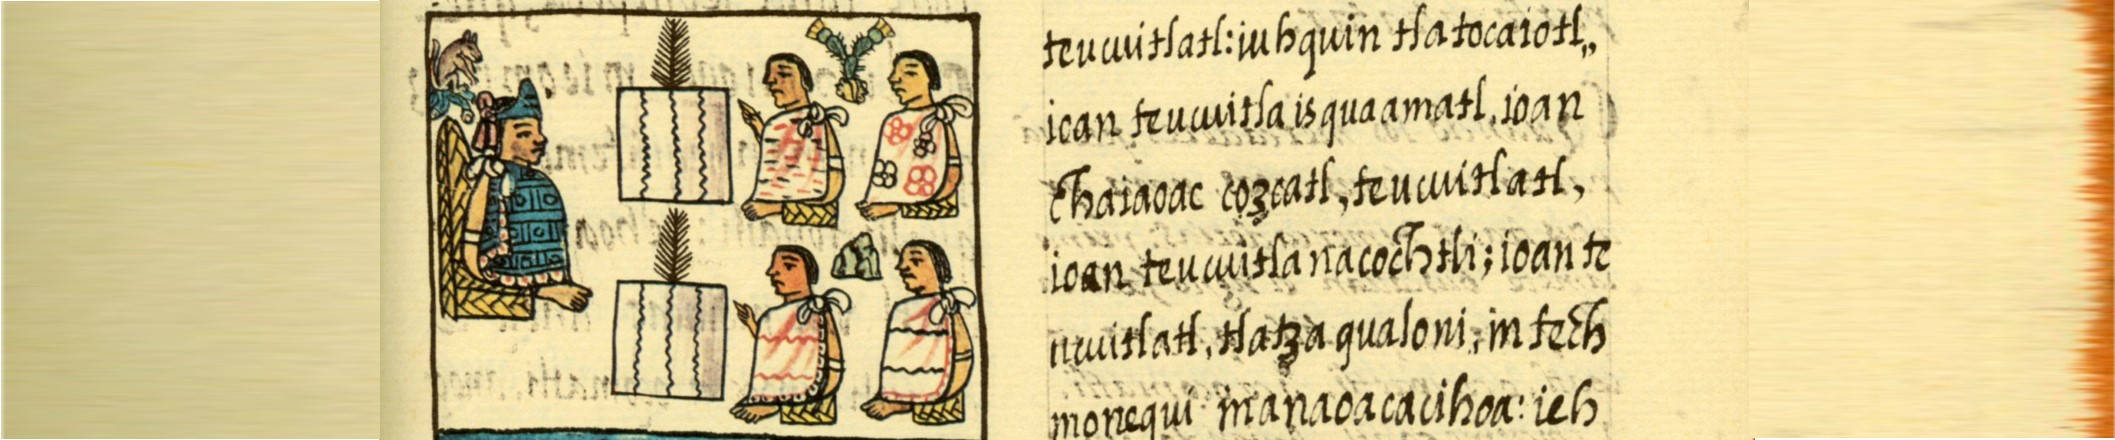 teucuitlatl: iuhquin tlatocaiotl,,
ioan teucuitla isquaamatl, ioan
chaiaoac cozcatl, teucuitlatl,
ioan teucuitlanacochtli; ioan te
ucuitlatl, tlatzaqualoni, in tech
monequi in anaoaca cihoa: ieh